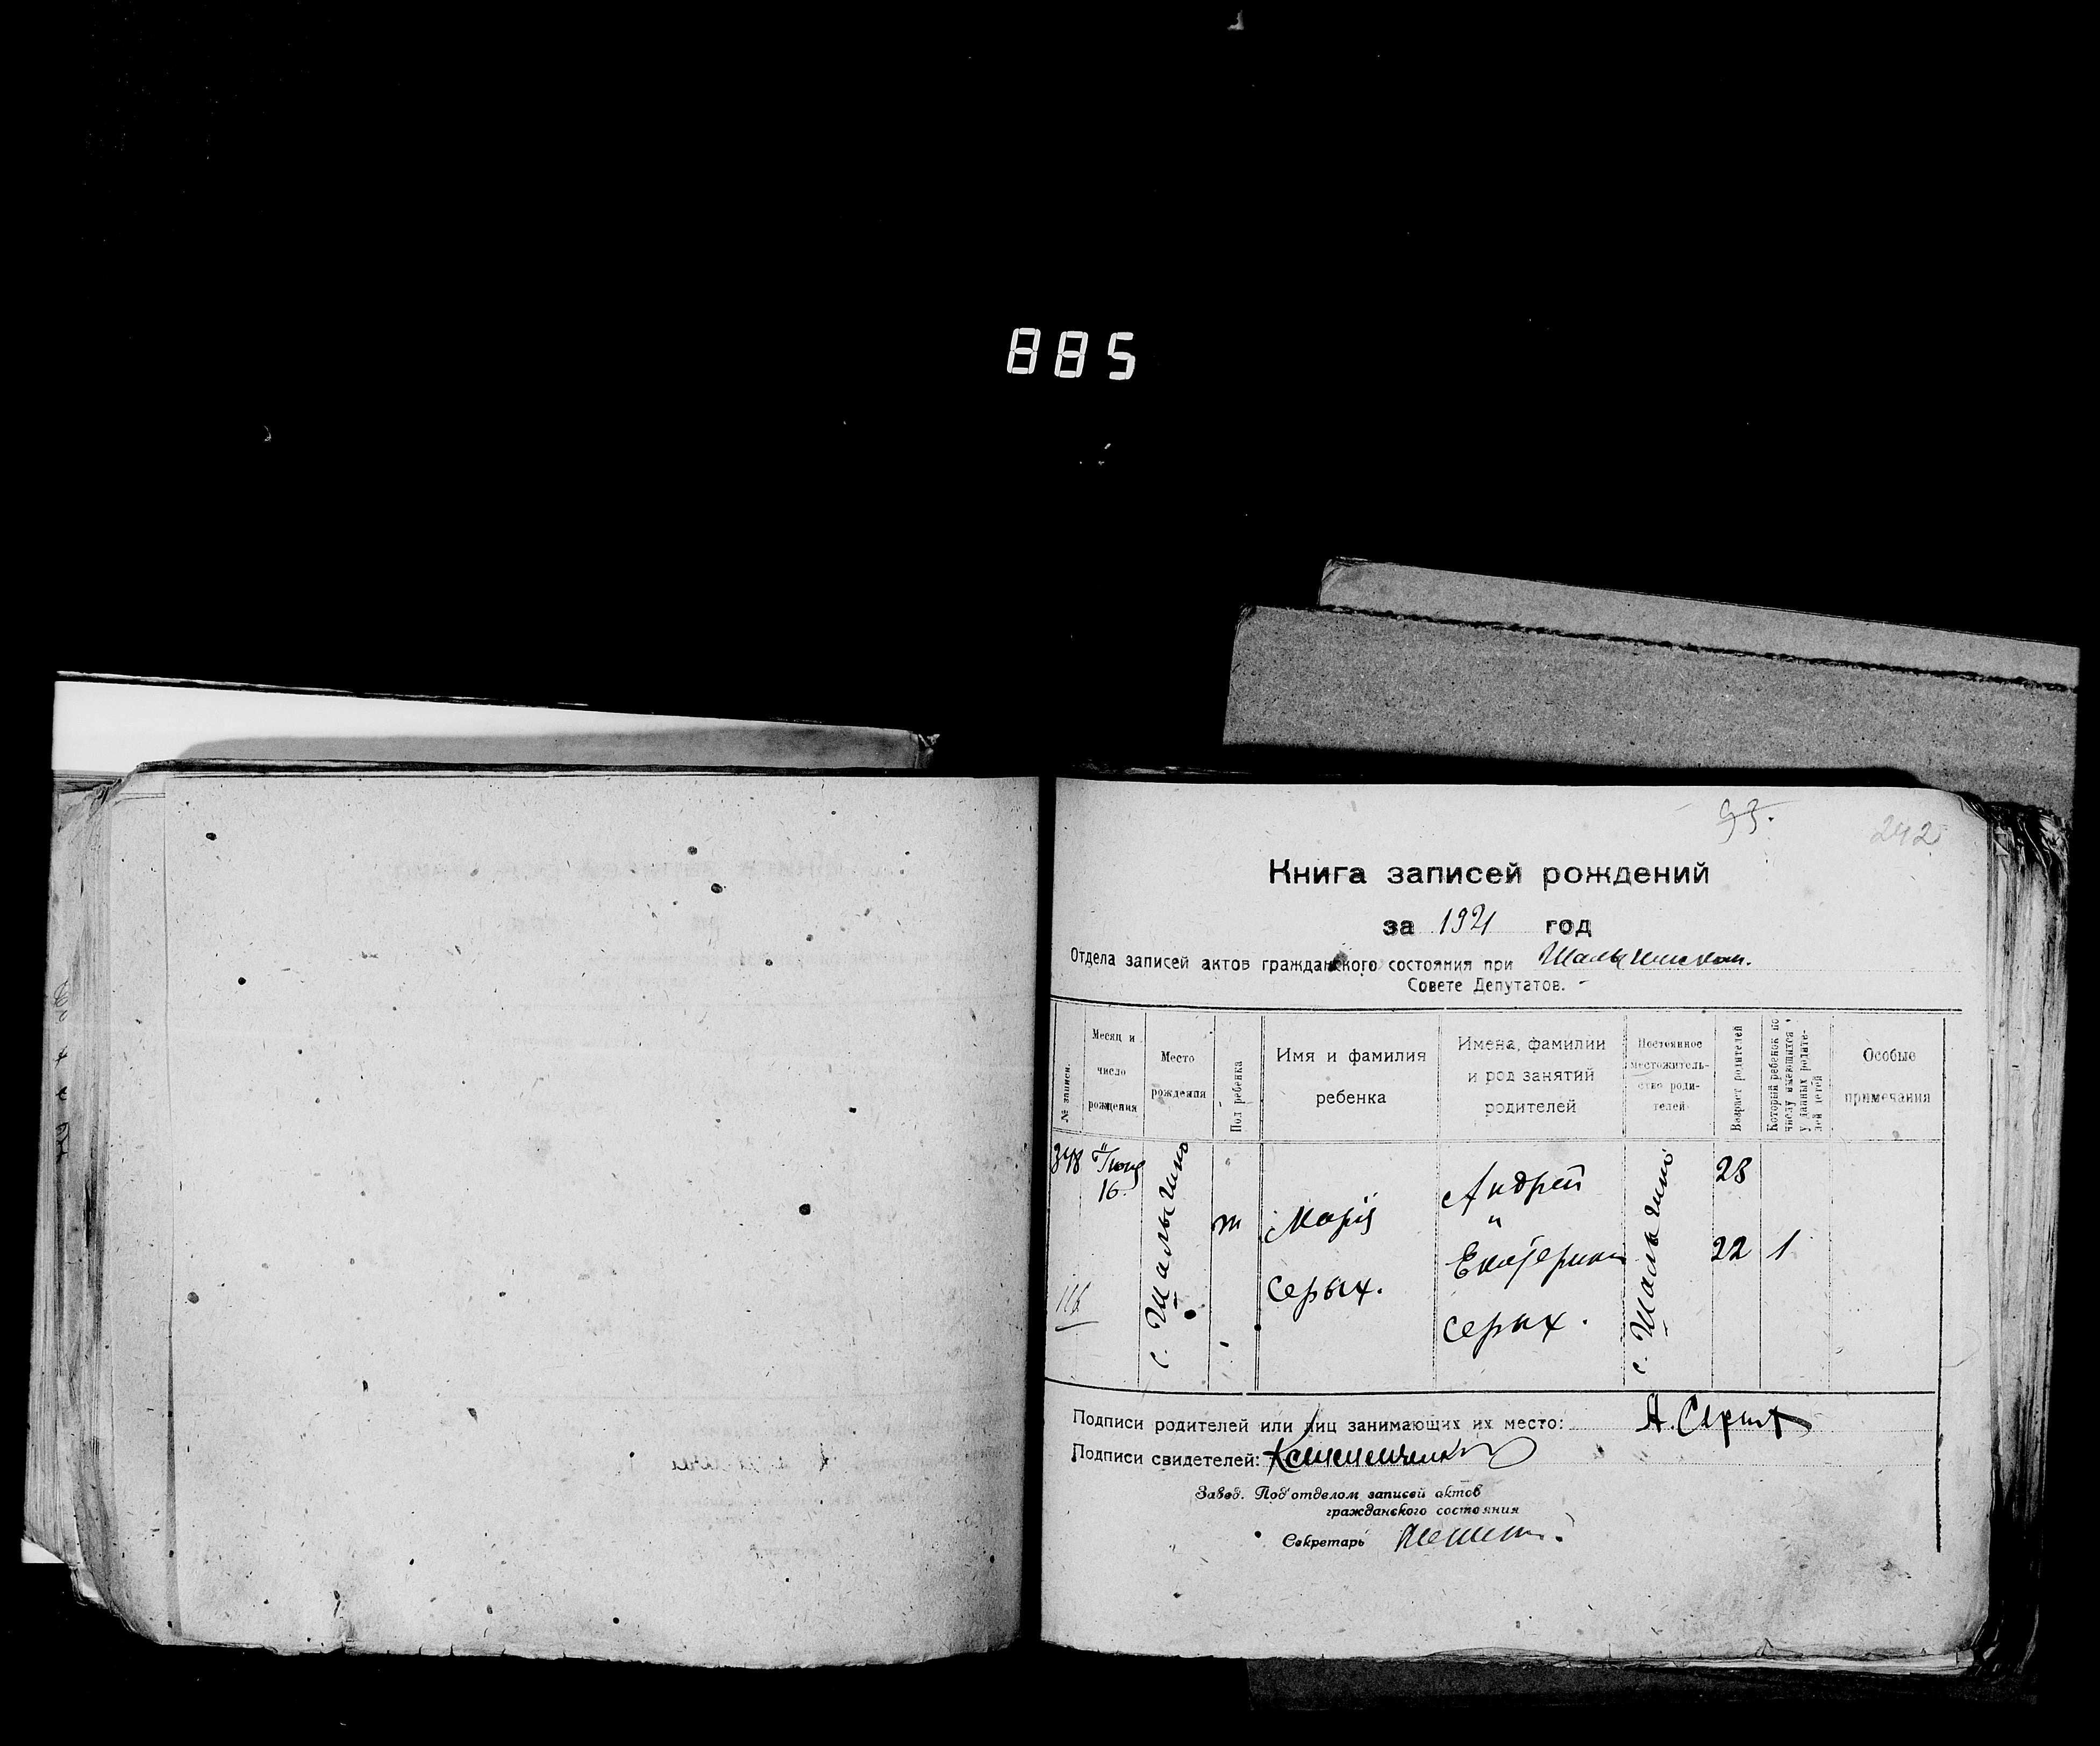 885
93.
242
Книга записей рождений
за 1921 год
Отдела записей актов гражданского состояния при Шалыгинском.
Совете Депутатов.
№ записи.
Месяц и
число
рождения
Место
рождения
Пол ребенка
Имя и фамилия
ребенка
Имена, фамилии
и род занятий
родителей
Постоянное
местожитель-
ство роди-
телей
Возраст родителей
Который ребенок по
числу имеющихся
у данных родите-
лей детей
Особые
примечания
348
16.
с. Шалыгино
Марія
Серых.
Андрей
"
Екатерина
Серых.
с. Шалыгино
28
22
1
116
Подписи родителей или лиц занимающих их место: А. Серых
Подписи свидетелей:
Завед. Под'отделом записей актов
гражданского состояния
Секретарь